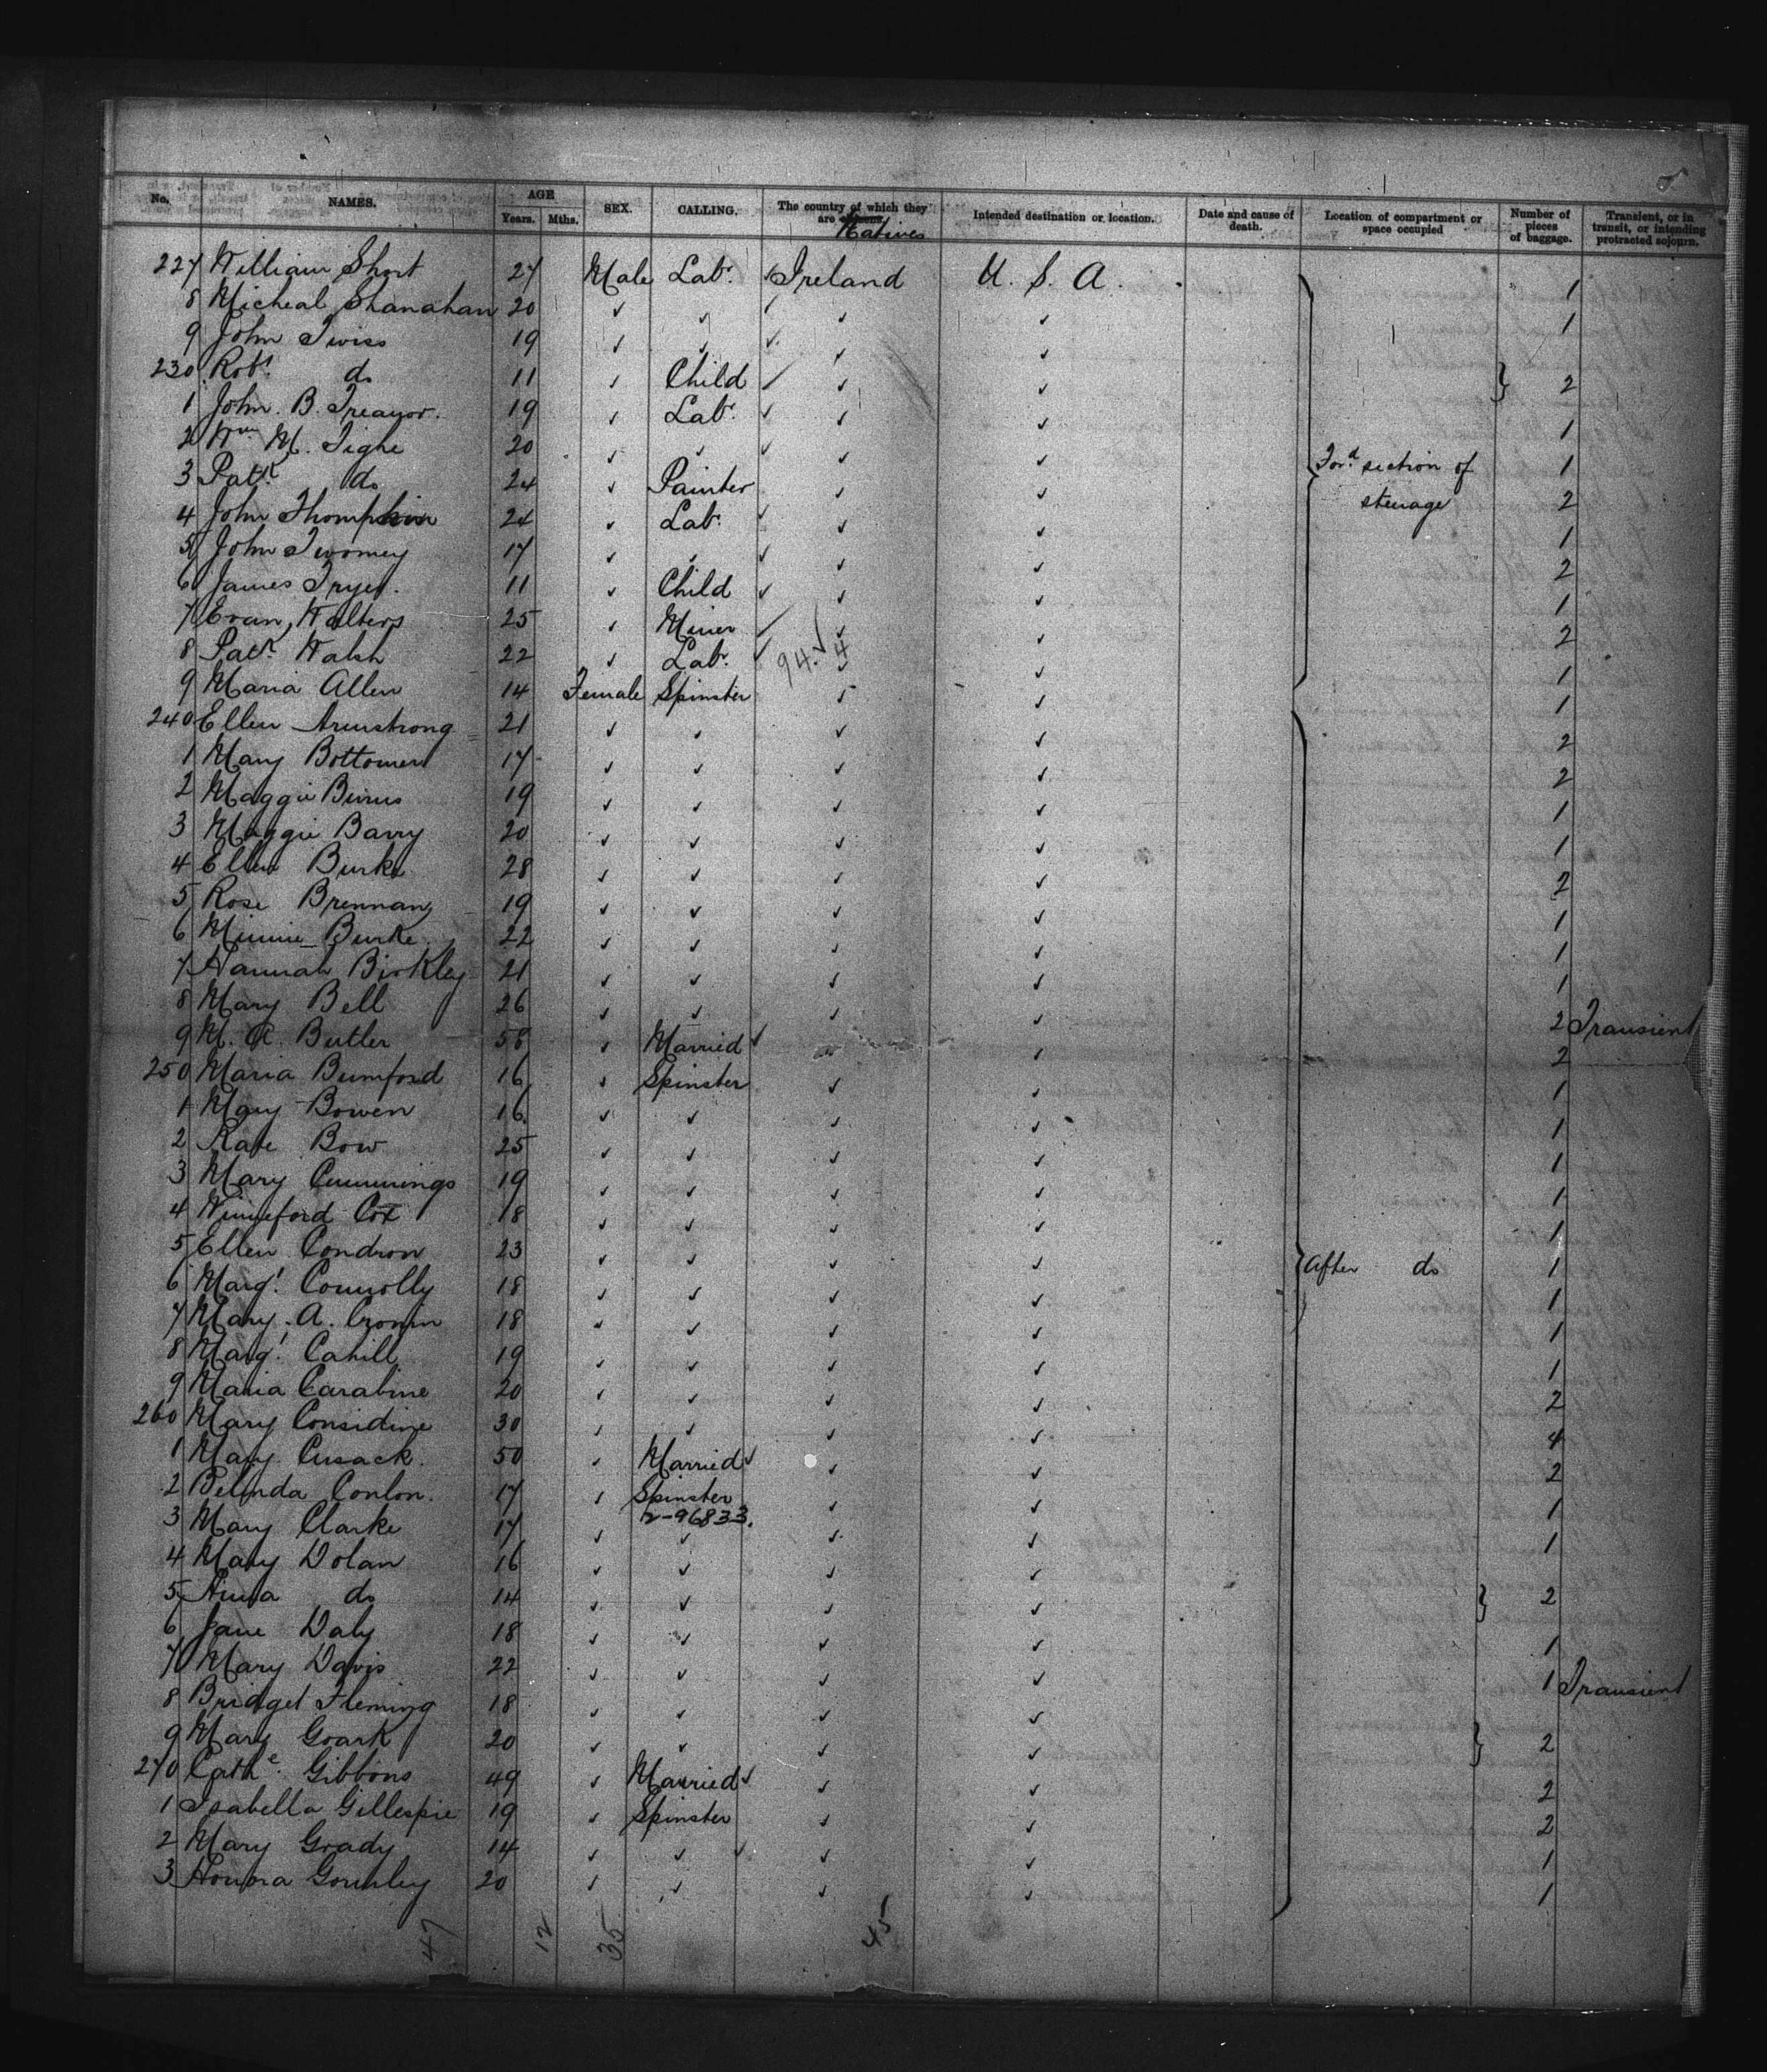 No. NAMES. AGE Years. Mths. SEX. CALLING. The country of which they are aliens. Natives Intended destination or location. Date and cause of death. Location of compartment or space occupied Number of pieces of baggage. Transient, or in transit, or intending protracted sojourn.
227 William Short 27 Male Labr. ✓ Ireland U. S. A. 1
8 Micheal Shanahan 20 ✓ ✓ ✓ ✓ 1
9 John Twiss 19 ✓ ✓ ✓ ✓
230 Robt. do 11 ✓ Child ✓ ✓ } 2
1 John. B. Treanor. 19 ✓ Labr. ✓ ✓ 1
2 Wm M. Tighe 20 ✓ ✓ ✓ ✓ 1
3 Patk. do 24 ✓ Painter ✓ ✓ Ford section of 2
4 John Thompson 24 ✓ Labr. ✓ ✓ steerage 1
5 John Twomey 17 ✓ ✓ ✓ ✓ 2
6 James Fryer. 11 ✓ Child ✓ ✓ 1
7 Evan Walters 25 ✓ Miner ✓ ✓ 2
8 Patk. Walsh 22 ✓ Labr. 94. ✓ 4 ✓ 1
9 Maria Allen 14 Female Spinster ✓ ✓ 1
240 Ellen Armstrong 21 ✓ ✓ ✓ ✓ 2
1 Mary Bottomer 17 ✓ ✓ ✓ ✓ 2
2 Maggie Binns 19 ✓ ✓ ✓ ✓ 1
3 Maggie Barry 20 ✓ ✓ ✓ ✓ 1
4 Ellen Burke 28 ✓ ✓ ✓ ✓ 2
5 Rose Brennan 19 ✓ ✓ ✓ ✓ 1
6 Minnie Burke 22 ✓ ✓ ✓ ✓ 1
7 Hannah Birkley 21 ✓ ✓ ✓ ✓ 1
8 Mary Bell 26 ✓ ✓ ✓ ✓ 2 Transient
9 M. A. Butler 58 ✓ Married ✓ ✓ 2
250 Maria Bumford 16 ✓ Spinster ✓ ✓ 1
1 Mary Bowen 16 ✓ ✓ ✓ ✓ 1
2 Kate Bow 25 ✓ ✓ ✓ ✓ 1
3 Mary Cummings 19 ✓ ✓ ✓ ✓ 1
4 Winneford Cox 18 ✓ ✓ ✓ ✓ 1
5 Ellen Condron 23 ✓ ✓ ✓ ✓ After do 1
6 Margt. Connolly 18 ✓ ✓ ✓ ✓ 1
7 Mary. A. Cronin 18 ✓ ✓ ✓ ✓ 1
8 Margt. Cahill 19 ✓ ✓ ✓ ✓ 1
9 Maria Carabine 20 ✓ ✓ ✓ ✓ 2
260 Mary Considine 30 ✓ ✓ ✓ ✓ 4
1 Mary Cusack. 50 ✓ Married ✓ ✓ 2
2 Belinda Conlon. 17 ✓ Spinster ✓ ✓ 1
2-96833.
3 Mary Clarke 17 ✓ ✓ ✓ ✓ 1
4 Mary Dolan 16 ✓ ✓ ✓ ✓
5 Anna do 14 ✓ ✓ ✓ ✓ } 2
6 Jane Daly 18 ✓ ✓ ✓ ✓ 1
7 Mary Davis 22 ✓ ✓ ✓ ✓ 1 Transient
8 Bridget Fleming 18 ✓ ✓ ✓ ✓
9 Mary Goark 20 ✓ ✓ ✓ ✓ } 2
270 Cathe. Gibbons 49 ✓ Married ✓ ✓ 2
1 Isabella Gillespie 19 ✓ Spinster ✓ ✓ 2
2 Mary Grady 14 ✓ ✓ ✓ ✓ 1
3 Honora Gourley 20 ✓ ✓ ✓ ✓ 1
47 12 35 45